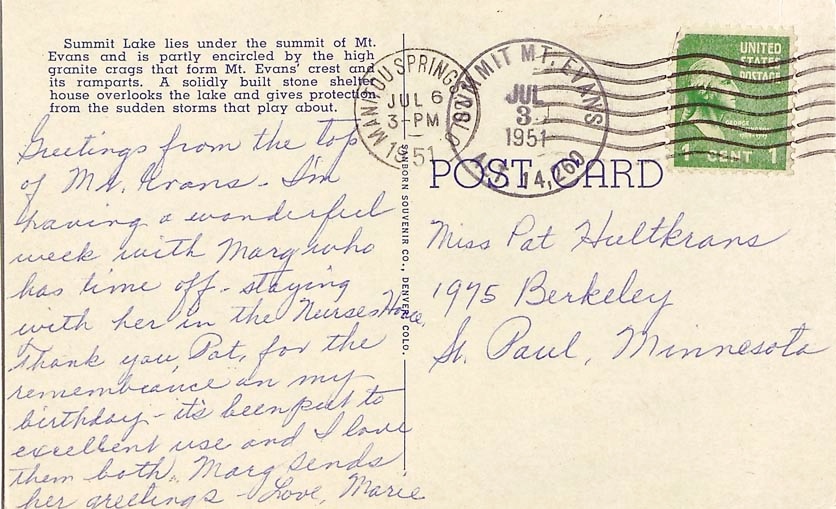 Summit Lake lies under the summit of Mt.
Evans and is partly encircled by the high
granite crags that form Mt. Evans' crest and
its ramparts. A solidly built stone shelter
house overlooks the lake and gives protection
from the sudden storms that play about.
Greetings from the top
of Mt. Evans - I'm
having a wonderful
week with Marg who
has time off - staying
with her in the Nurses Home.
Thank you, Pat, for the
remembrance on my
birthday - it's been put to
excellent use and I love
them both. Marg sends
her greetings - Love, Marie
SANBORN SOUVENIR CO., DENVER, COLO.
MANITOU SPRINGS COLO.
JUL 6
3-PM
1951
SUMMIT MT. EVANS
JUL
3
1951
ALT. 14,260
UNITED
STATES
POSTAGE
GEORGE
1 CENT 1
POST CARD
Miss Pat Hultkrans
1975 Berkeley
St. Paul, Minnesota